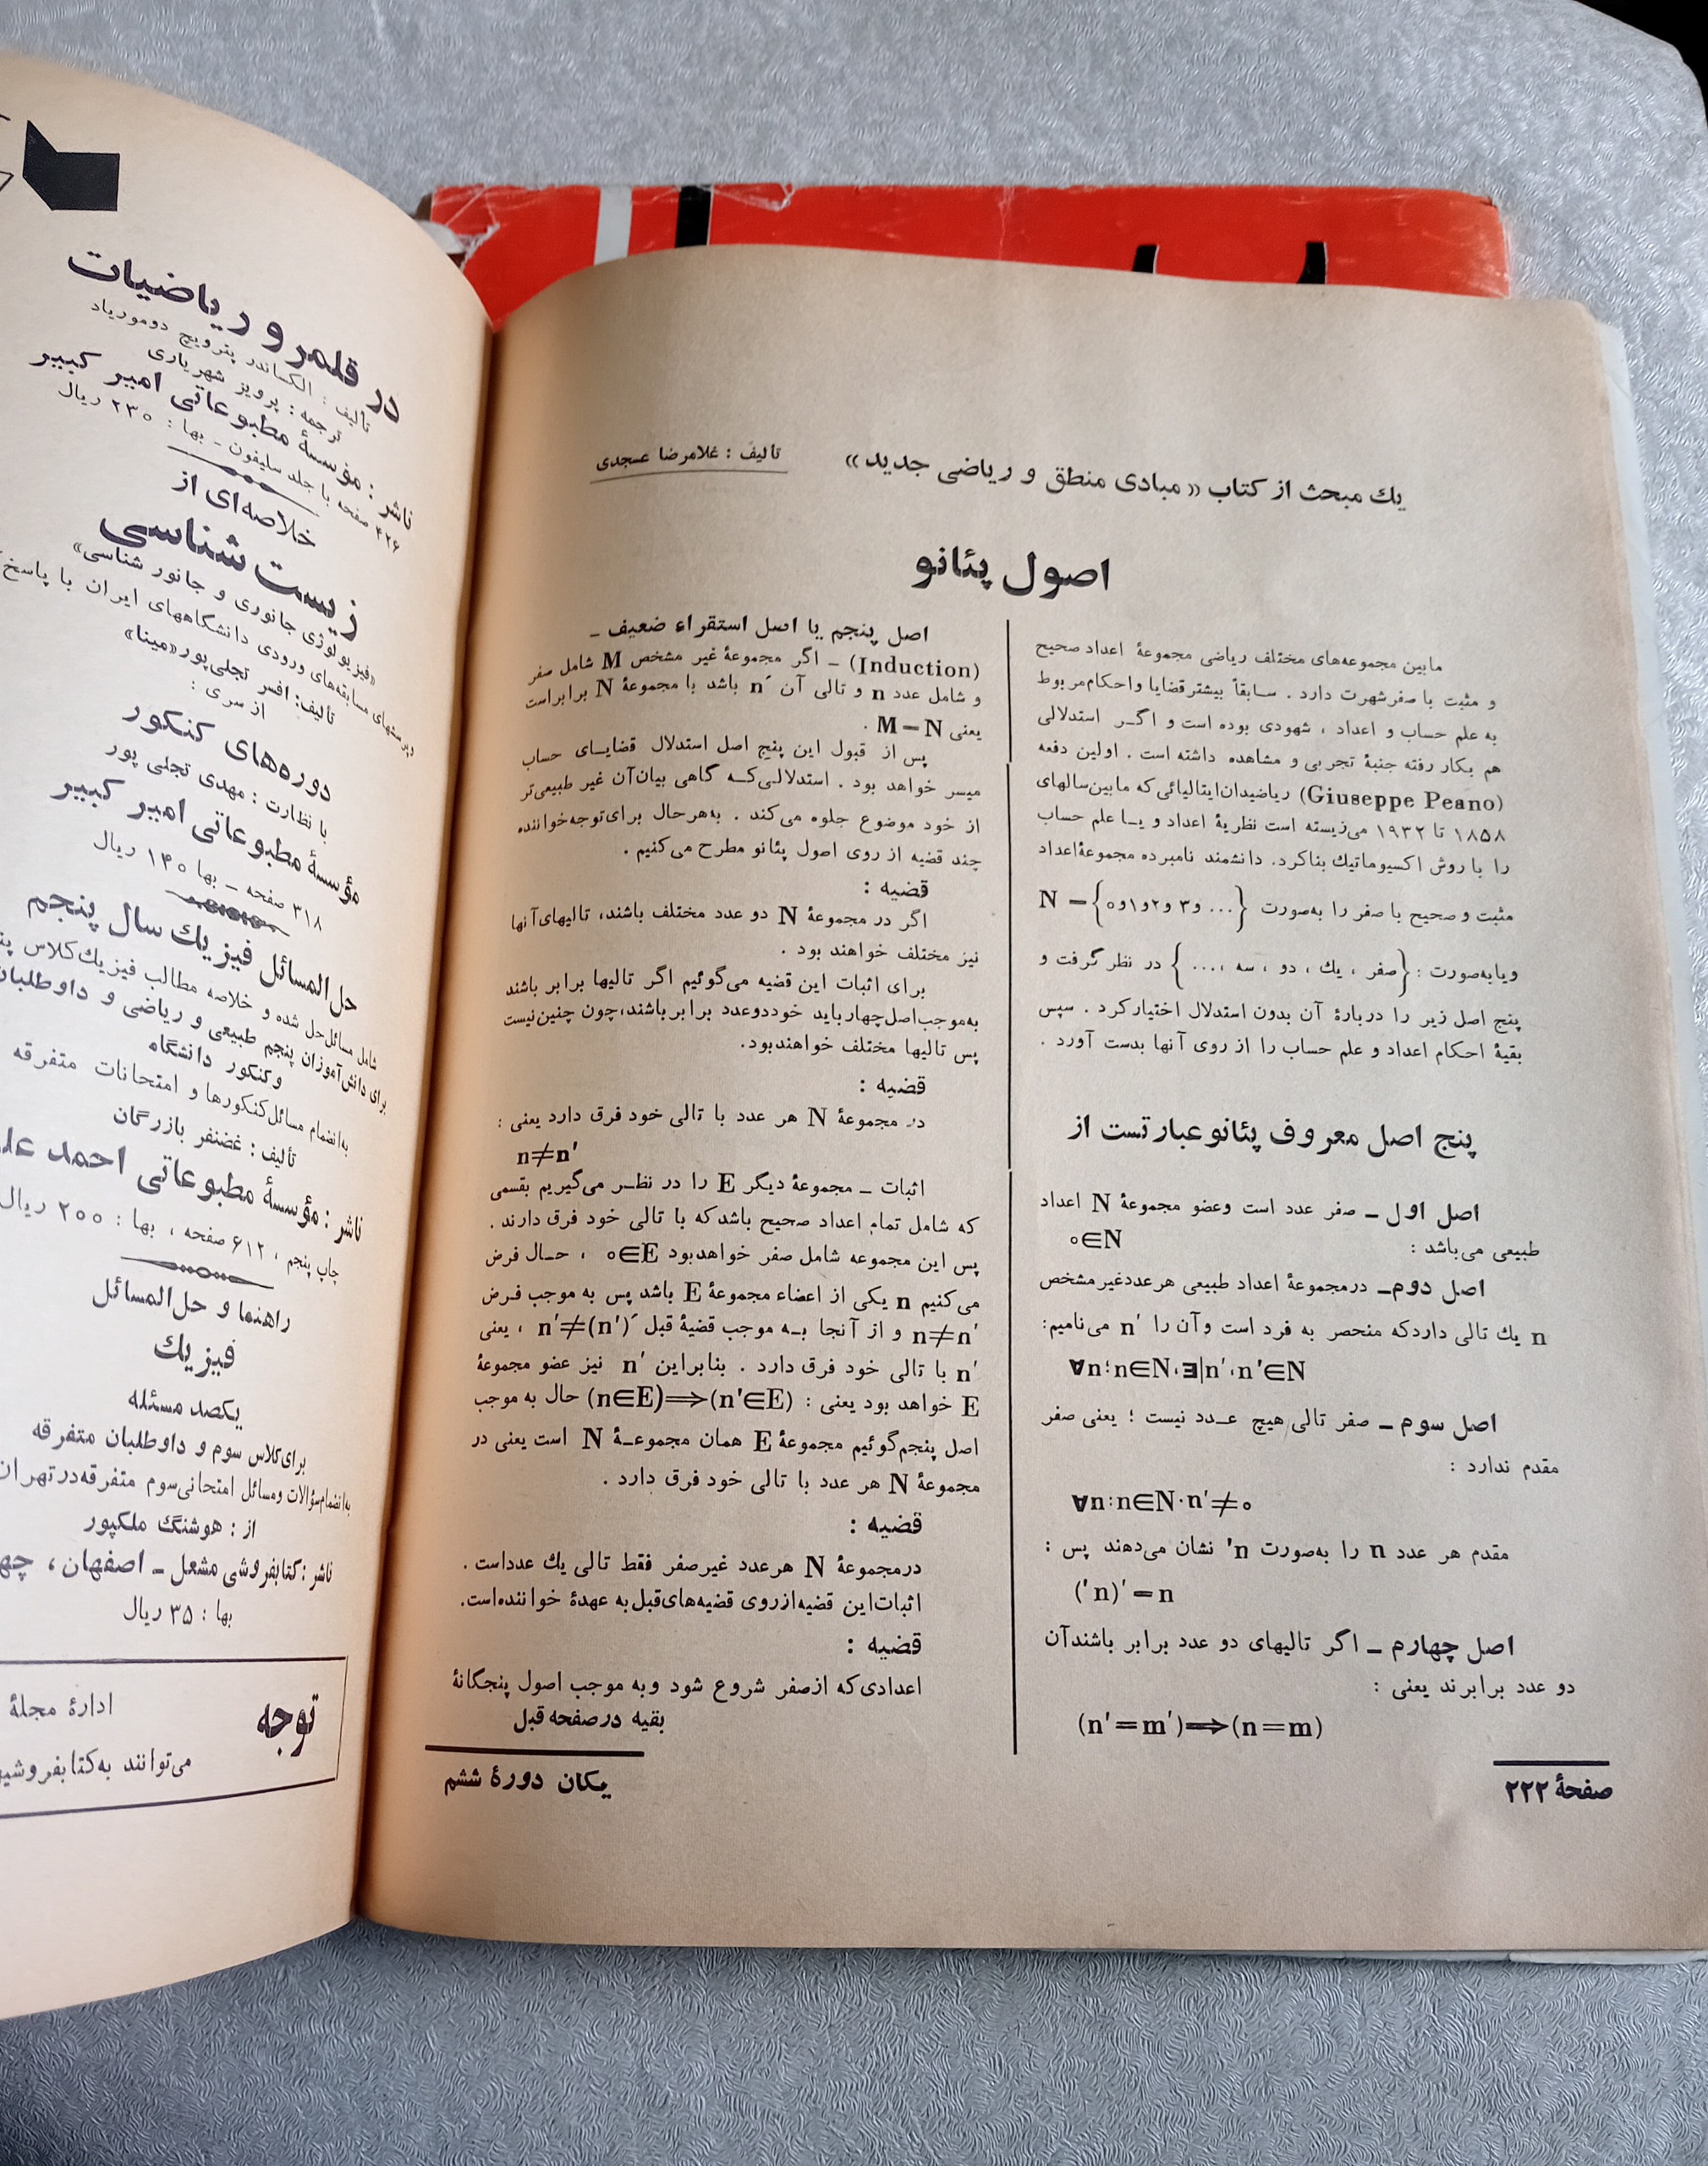 یك مبحث از کتاب «مبادی منطق و ریاضی جدید»
تألیف : غلامرضا عسجدی
اصول پئانو
مابین مجموعه‌های مختلف ریاضی مجموعهٔ اعداد صحیح
و مثبت با صفر شهرت دارد . سابقاً بیشتر قضایا و احکام مربوط
به علم حساب و اعداد ، شهودی بوده است و اگر استدلالی
هم بکار رفته جنبهٔ تجربی و مشاهده داشته است . اولین دفعه
(Giuseppe Peano) ریاضیدان ایتالیائی که مابین سالهای
۱۸۵۸ تا ۱۹۳۲ می‌زیسته است نظریهٔ اعداد و یا علم حساب
را با روش اکسیوماتیك بنا کرد. دانشمند نامبرده مجموعهٔ اعداد
مثبت و صحیح با صفر را به‌صورت N = {۰و۱و۲و۳ و ...}
و یا به‌صورت : {صفر ، یك ، دو ، سه ، ...} در نظر گرفت و
پنج اصل زیر را دربارهٔ آن بدون استدلال اختیار کرد . سپس
بقیهٔ احکام اعداد و علم حساب را از روی آنها بدست آورد .
پنج اصل معروف پئانو عبارتست از
اصل اول ــ صفر عدد است وعضو مجموعهٔ N اعداد
طبیعی می‌باشد : ۰∈N
اصل دوم ــ درمجموعهٔ اعداد طبیعی هر عدد غیر مشخص
n یك تالی دارد که منحصر به فرد است و آن را n′ می‌نامیم:
∀n:n∈N،∃|n′،n′∈N
اصل سوم ــ صفر تالی هیچ عدد نیست ؛ یعنی صفر
مقدم ندارد :
∀n:n∈N·n′≠۰
مقدم هر عدد n را به‌صورت ′n نشان می‌دهند پس :
(′n)′=n
اصل چهارم ــ اگر تالیهای دو عدد برابر باشند آن
دو عدد برابرند یعنی :
(n′=m′)⟹(n=m)
صفحهٔ ۲۲۲
اصل پنجم یا اصل استقراء ضعیف ــ
(Induction) ــ اگر مجموعهٔ غیر مشخص M شامل صفر
و شامل عدد n و تالی آن n′ باشد با مجموعهٔ N برابر است
یعنی M=N .
پس از قبول این پنج اصل استدلال قضایای حساب
میسر خواهد بود . استدلالی که گاهی بیان آن غیر طبیعی‌تر
از خود موضوع جلوه می‌کند . به‌هرحال برای توجه خواننده
چند قضیه از روی اصول پئانو مطرح می‌کنیم .
قضیه :
اگر در مجموعهٔ N دو عدد مختلف باشند، تالیهای آنها
نیز مختلف خواهند بود .
برای اثبات این قضیه می‌گوئیم اگر تالیها برابر باشند
به‌موجب اصل چهار باید خود دو عدد برابر باشند، چون چنین نیست
پس تالیها مختلف خواهند بود.
قضیه :
در مجموعهٔ N هر عدد با تالی خود فرق دارد یعنی :
n≠n′
اثبات ــ مجموعهٔ دیگر E را در نظر می‌گیریم بقسمی
که شامل تمام اعداد صحیح باشد که با تالی خود فرق دارند .
پس این مجموعه شامل صفر خواهد بود ۰∈E ، حال فرض
می‌کنیم n یکی از اعضاء مجموعهٔ E باشد پس به موجب فرض
n≠n′ و از آنجا به موجب قضیهٔ قبل n′≠(n′)′ ، یعنی
n′ با تالی خود فرق دارد . بنابراین n′ نیز عضو مجموعهٔ
E خواهد بود یعنی : (n∈E)⟹(n′∈E) حال به موجب
اصل پنجم گوئیم مجموعهٔ E همان مجموعهٔ N است یعنی در
مجموعهٔ N هر عدد با تالی خود فرق دارد .
قضیه :
درمجموعهٔ N هر عدد غیر صفر فقط تالی یك عدد است .
اثبات این قضیه از روی قضیه‌های قبل به عهدهٔ خواننده است.
قضیه :
اعدادی که از صفر شروع شود و به موجب اصول پنجگانهٔ
بقیه در صفحه قبل
یکان دورهٔ ششم
در قلمرو ریاضیات
تألیف : الکساندر پترویچ دوموریاد
ترجمه : پرویز شهریاری
ناشر : مؤسسهٔ مطبوعاتی امیر کبیر
۴۲۶ صفحه با جلد سلیفون ـ بها : ۲۳۰ ریال
خلاصه‌ای از
زیست شناسی
«فیزیولوژی جانوری و جانور شناسی»
پرسشهای مسابقه‌های ورودی دانشگاههای ایران با پاسخ
تألیف: افسر تجلی‌پور «مینا»
از سری :
دوره‌های کنکور
با نظارت : مهدی تجلی پور
مؤسسهٔ مطبوعاتی امیر کبیر
۳۱۸ صفحه ــ بها ۱۴۰ ریال
حل‌المسائل فیزیك سال پنجم
شامل مسائل حل شده و خلاصه مطالب فیزیك کلاس
برای دانش‌آموزان پنجم طبیعی و ریاضی و داوطلبان
کنکور دانشگاه
به‌انضمام مسائل کنکورها و امتحانات متفرقه
تألیف : غضنفر بازرگان
ناشر : مؤسسهٔ مطبوعاتی احمد
چاپ پنجم ، ۶۱۲ صفحه ، بها : ۲۰۰ ریال
راهنما و حل‌المسائل
فیزیك
یکصد مسئله
برای کلاس سوم و داوطلبان متفرقه
به‌انضمام سؤالات و مسائل امتحانی سوم متفرقه در تهران
از : هوشنگ ملکپور
ناشر : کتابفروشی مشعل ــ اصفهان ،
بها : ۳۵ ریال
توجه
ادارهٔ مجلهٔ
می‌توانند به